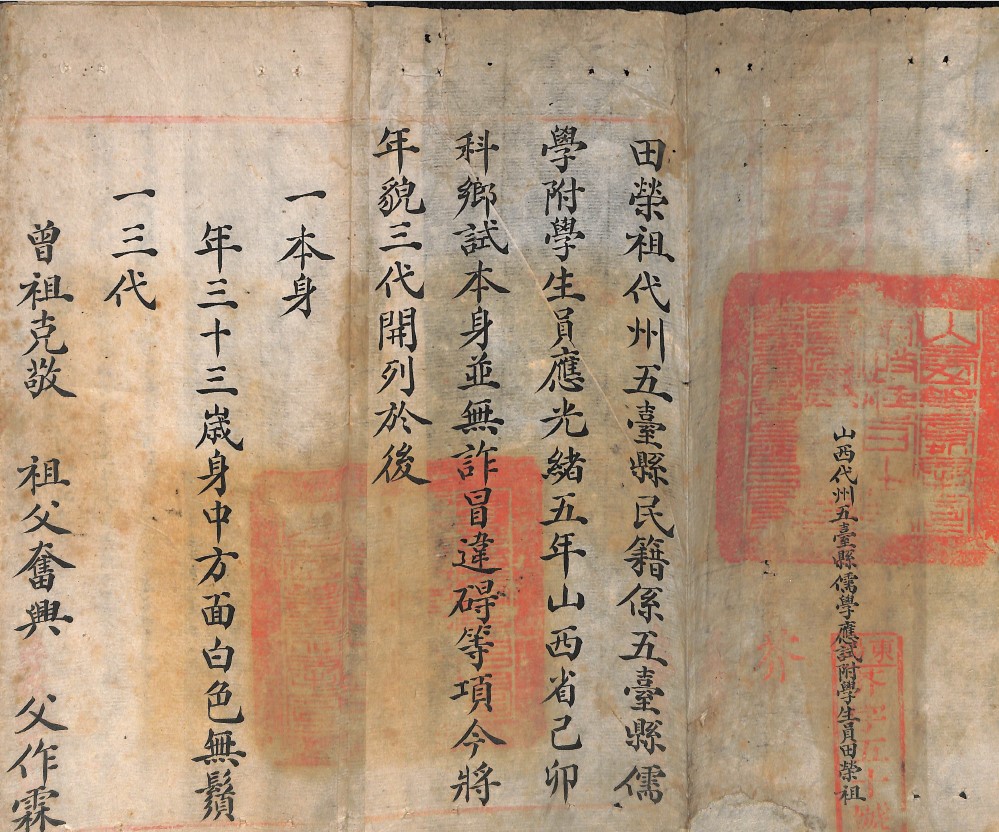 山西代州五臺縣儒學應試附學生員田榮祖
田榮祖代州五臺縣民籍係五臺縣儒
學附學生員應光緒五年山西省己卯
科鄉試本身並無詐冒違碍等項今將
年貌三代開列於後
一本身
年三十三歲身中方面白色無鬚
一三代
曾祖克敬 祖父奮興 父作霖